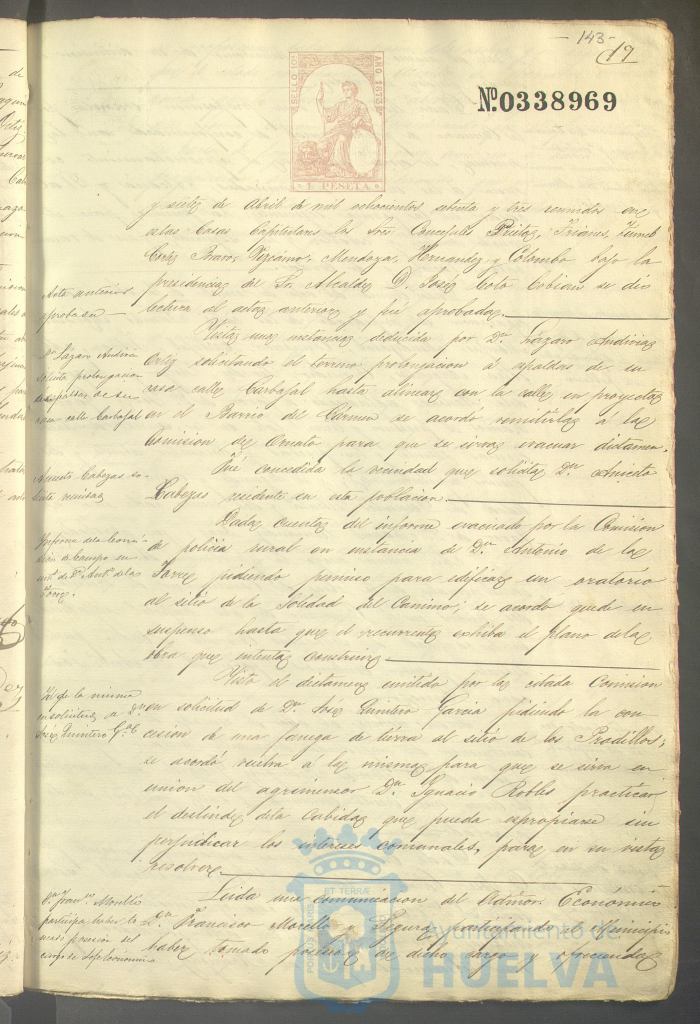 -143-
19
SELLO 10º AÑO 1873
1 PESETA
Nº 0338969
y siete de Abril de mil ochocientos setenta y tres reunidos en
las Casas Capitulares los Sres Concejales Prieto,
Bravo, Vizcaino, Mendoza, Hernandez y Colombo bajo la
presidencia del Sr. Alcalde D. José Coto Cobian se dio
lectura al acta anterior y fué aprobada.
Acta anterior
aprobada
Vista una instancia deducida por Dn. Lázaro
Ortiz solicitando el terreno prolongacion á espaldas de su
casa calle Carbajal hasta alinear con la calle en proyecto
en el Barrio del Cármen se acordó remitirla á la
Comision de Ornato para que se sirva evacuar dictamen.
Dn. Lázaro
solicita prolongacion
espaldas de su
casa calle Carbajal
Fué concedida la vecindad que solicita Dn. Aniceto
Cabezas residente en esta poblacion.
Aniceto Cabezas so-
licita vecindad
Dada cuenta del informe evacuado por la Comision
de policia rural en instancia de Dn. Antonio de la
Torre pidiendo permiso para edificar un oratorio
al sitio de la Soledad del Camino; se acordó quede en
suspenso hasta que el recurrente exhiba el plano dela
obra que intenta construir
Informe dela Comi-
sion de Campo en
inst. de Dn. Antº. dela
Torre.
Visto el dictamen emitido por la citada Comision
en solicitud de Dn. José Quintero Garcia pidiendo la con
cesion de una fanega de tierra al sitio de los Pradillos;
se acordó vuelva a la misma para que se sirva en
union del agrimensor Dn. Ignacio Robles practicar
el deslinde dela cabida que pueda espropiarse sin
perjudicar los intereses comunales, para en su vista
resolver
Id. de la misma
en solicitud de Dn
José Quintero Gª
Leida una comunicacion del Admor. Económico
Dn. Francisco Morell Segura participando al Municipio
haber tomado posesion de dicho cargo y ofreciendo
Dn. Franº. Morell
participa haber to
mado posesion del
cargo de Jefe Económico
Ayuntamiento de
HUELVA